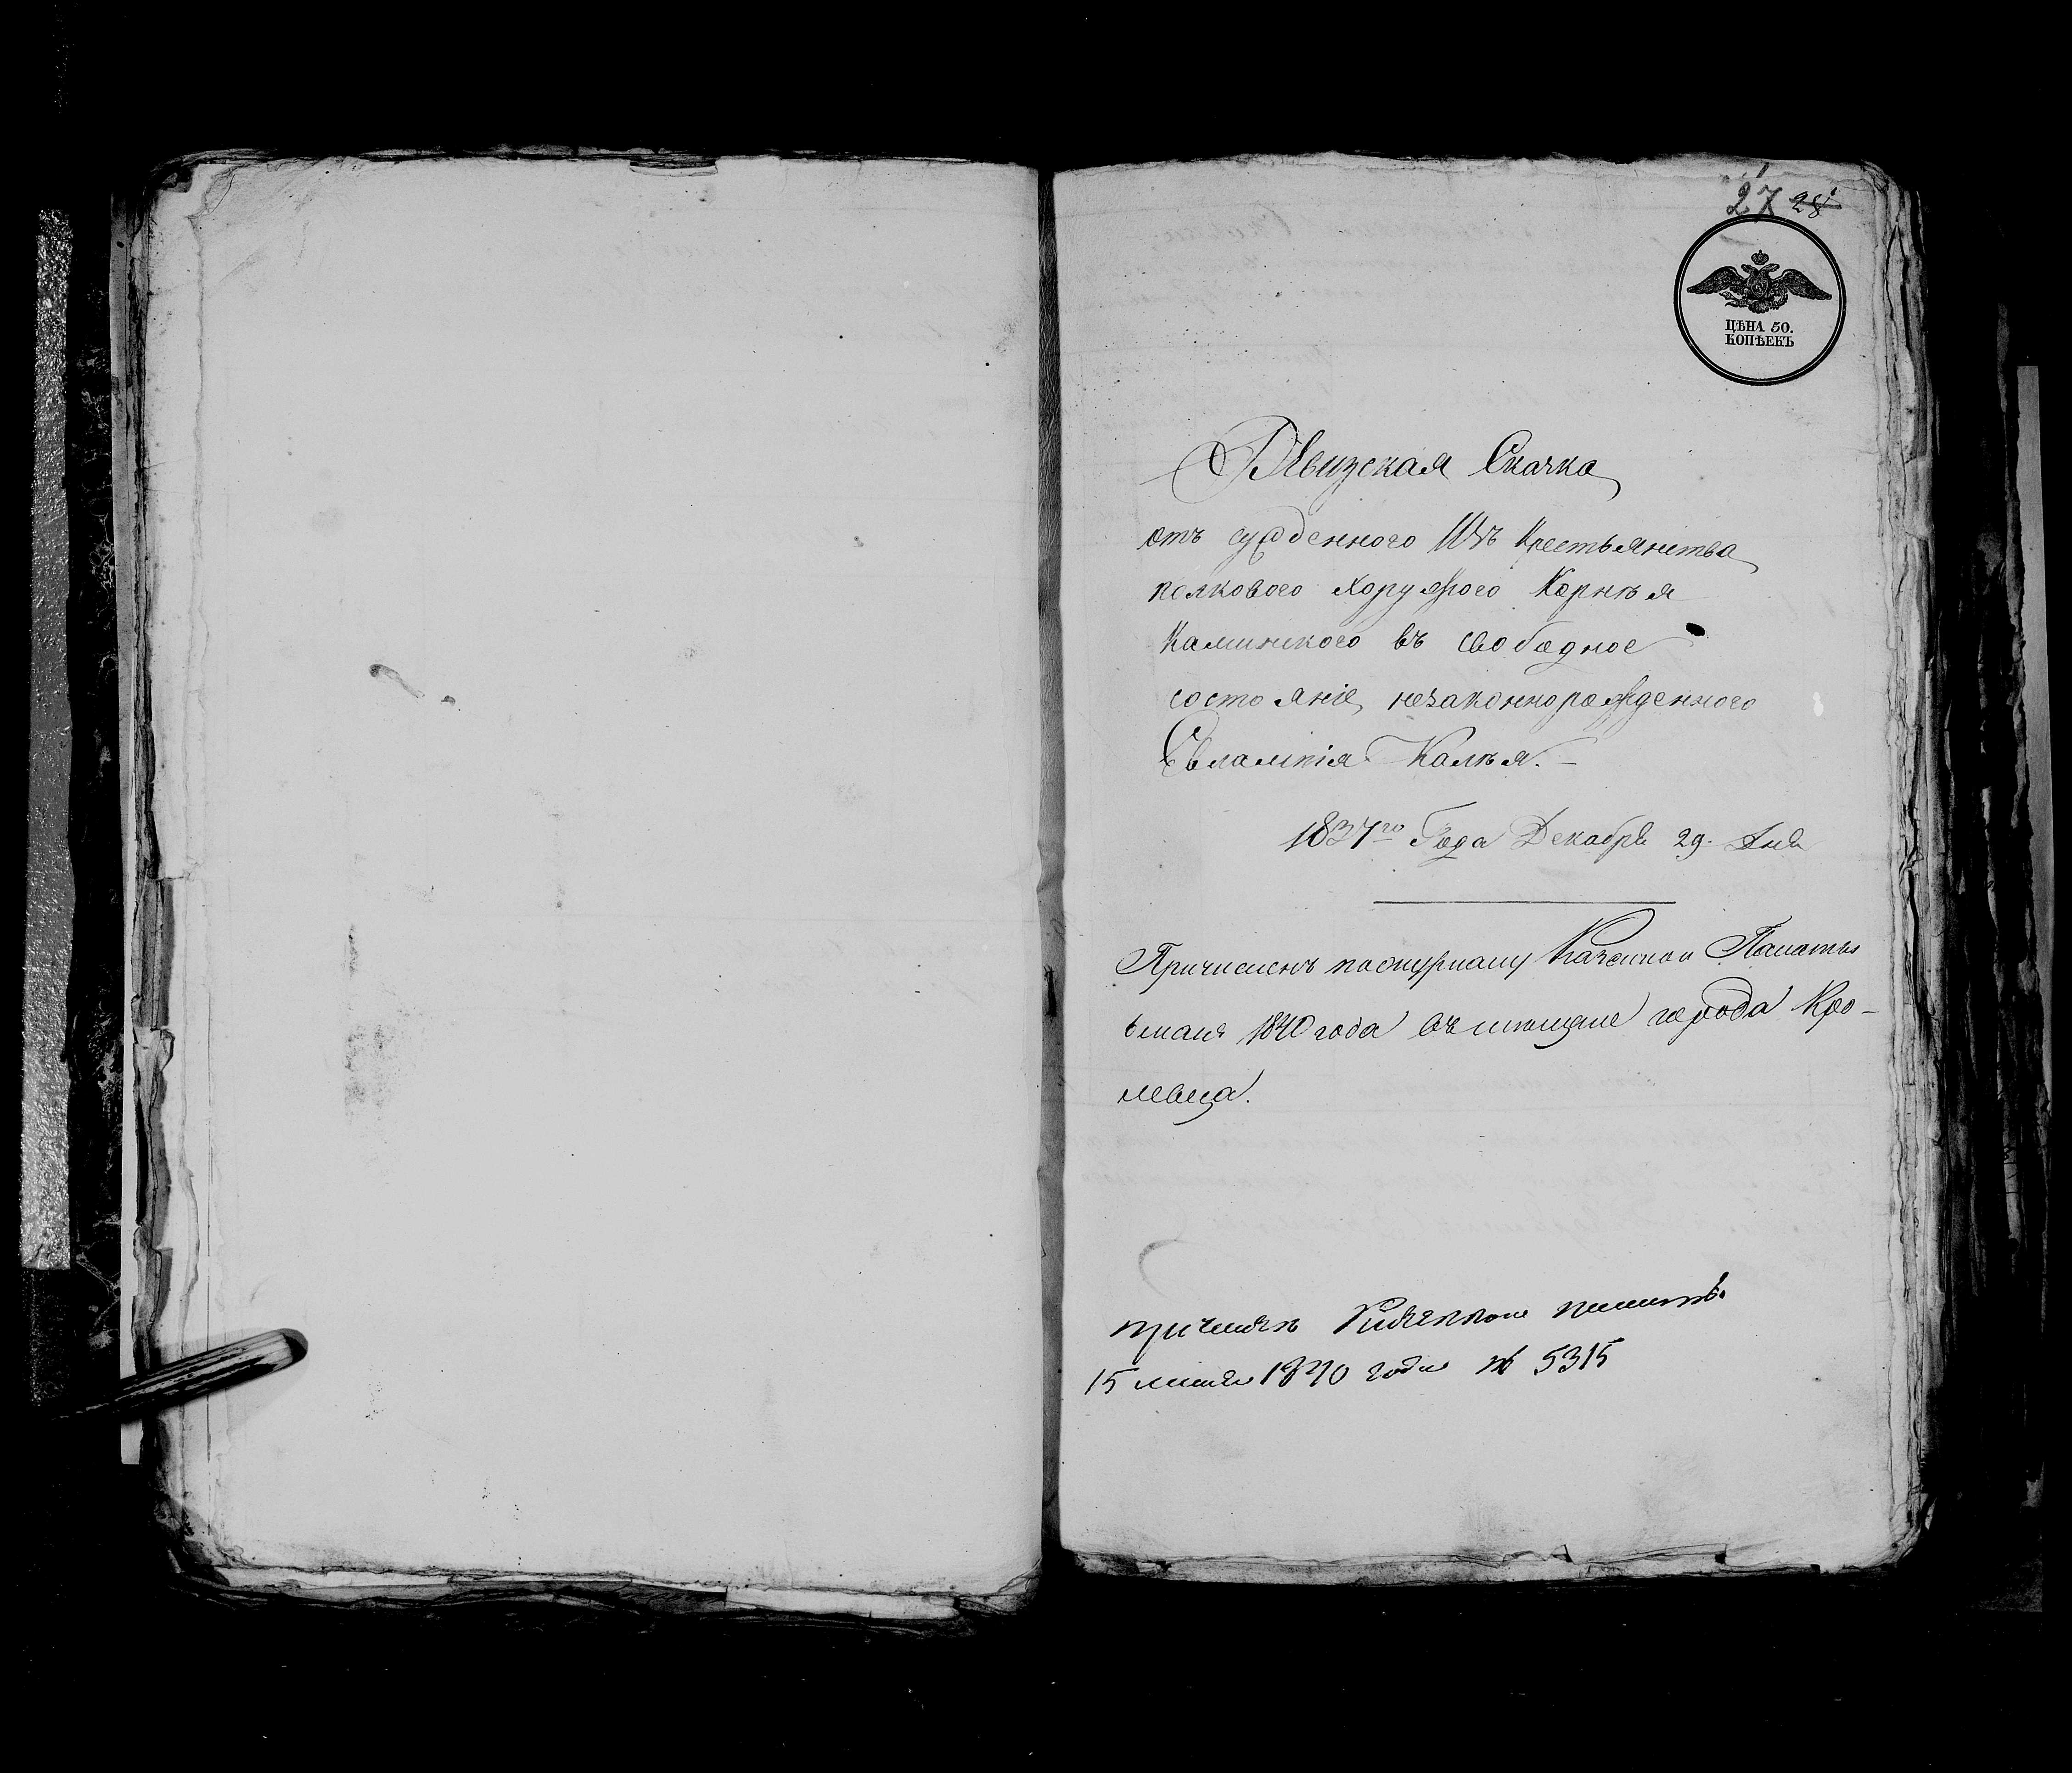 27 28
ЦѢНА 50.
КОПѢЕКЪ
Ревизская Скаска
отъ сужденного Изъ Крестьянства
полкового Хоружого Корнѣя
Каминского въ свободное
состояніе, незаконнорожденного
Евлампія Калѣя.
1837го Года Декабря 29. Дня
Причисленъ по журналу Казенной Палаты
6 мая 1840 года въ мещане города Кро-
левца.
Причисленъ Казенною палатою
15 мая 1840 года № 5315